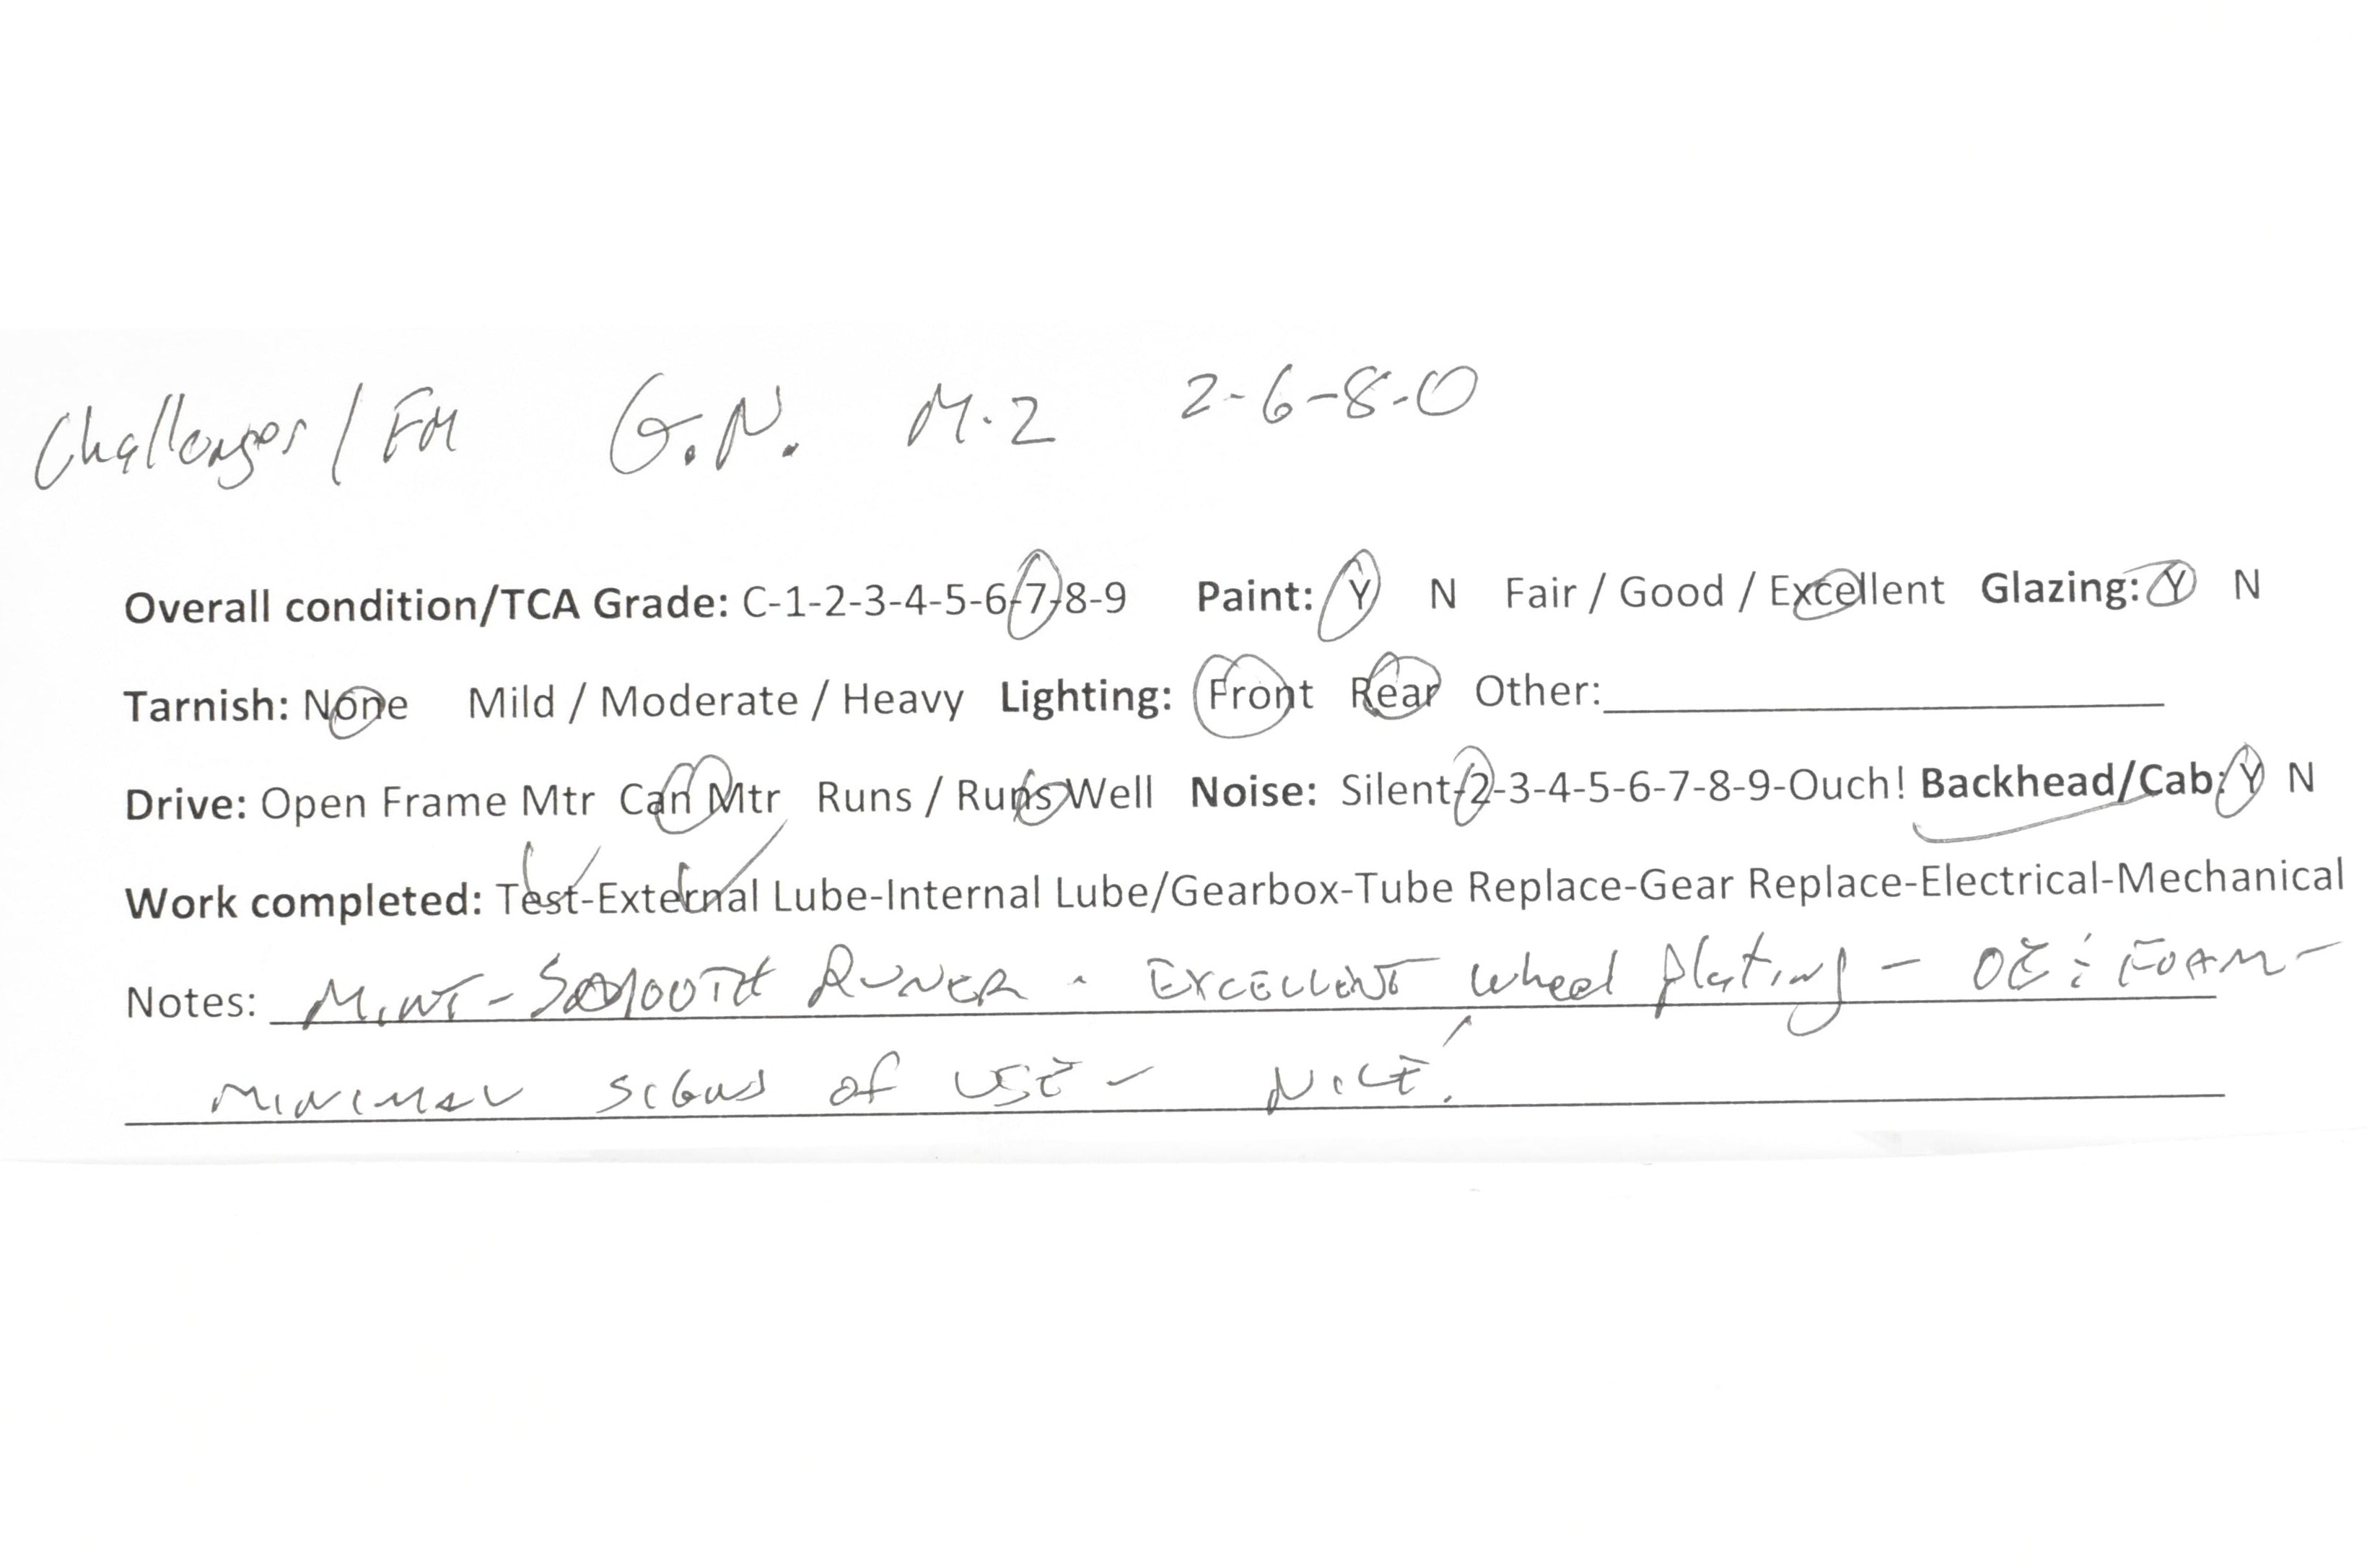 Challenger / FM G.N. M-2 2-6-8-0
Overall condition/TCA Grade: C-1-2-3-4-5-6-7-8-9 Paint: Y N Fair / Good / Excellent Glazing: Y N
Tarnish: None Mild / Moderate / Heavy Lighting: Front Rear Other:
Drive: Open Frame Mtr Can Mtr Runs / Runs Well Noise: Silent-2-3-4-5-6-7-8-9-Ouch! Backhead/Cab: Y N
Work completed: Test-External Lube-Internal Lube/Gearbox-Tube Replace-Gear Replace-Electrical-Mechanical
Notes: MINT - SMOOTH RUNER - EXCELLENT wheel plating - OE : FOAM -
MINIMAL SIGNS OF USE - NICE!